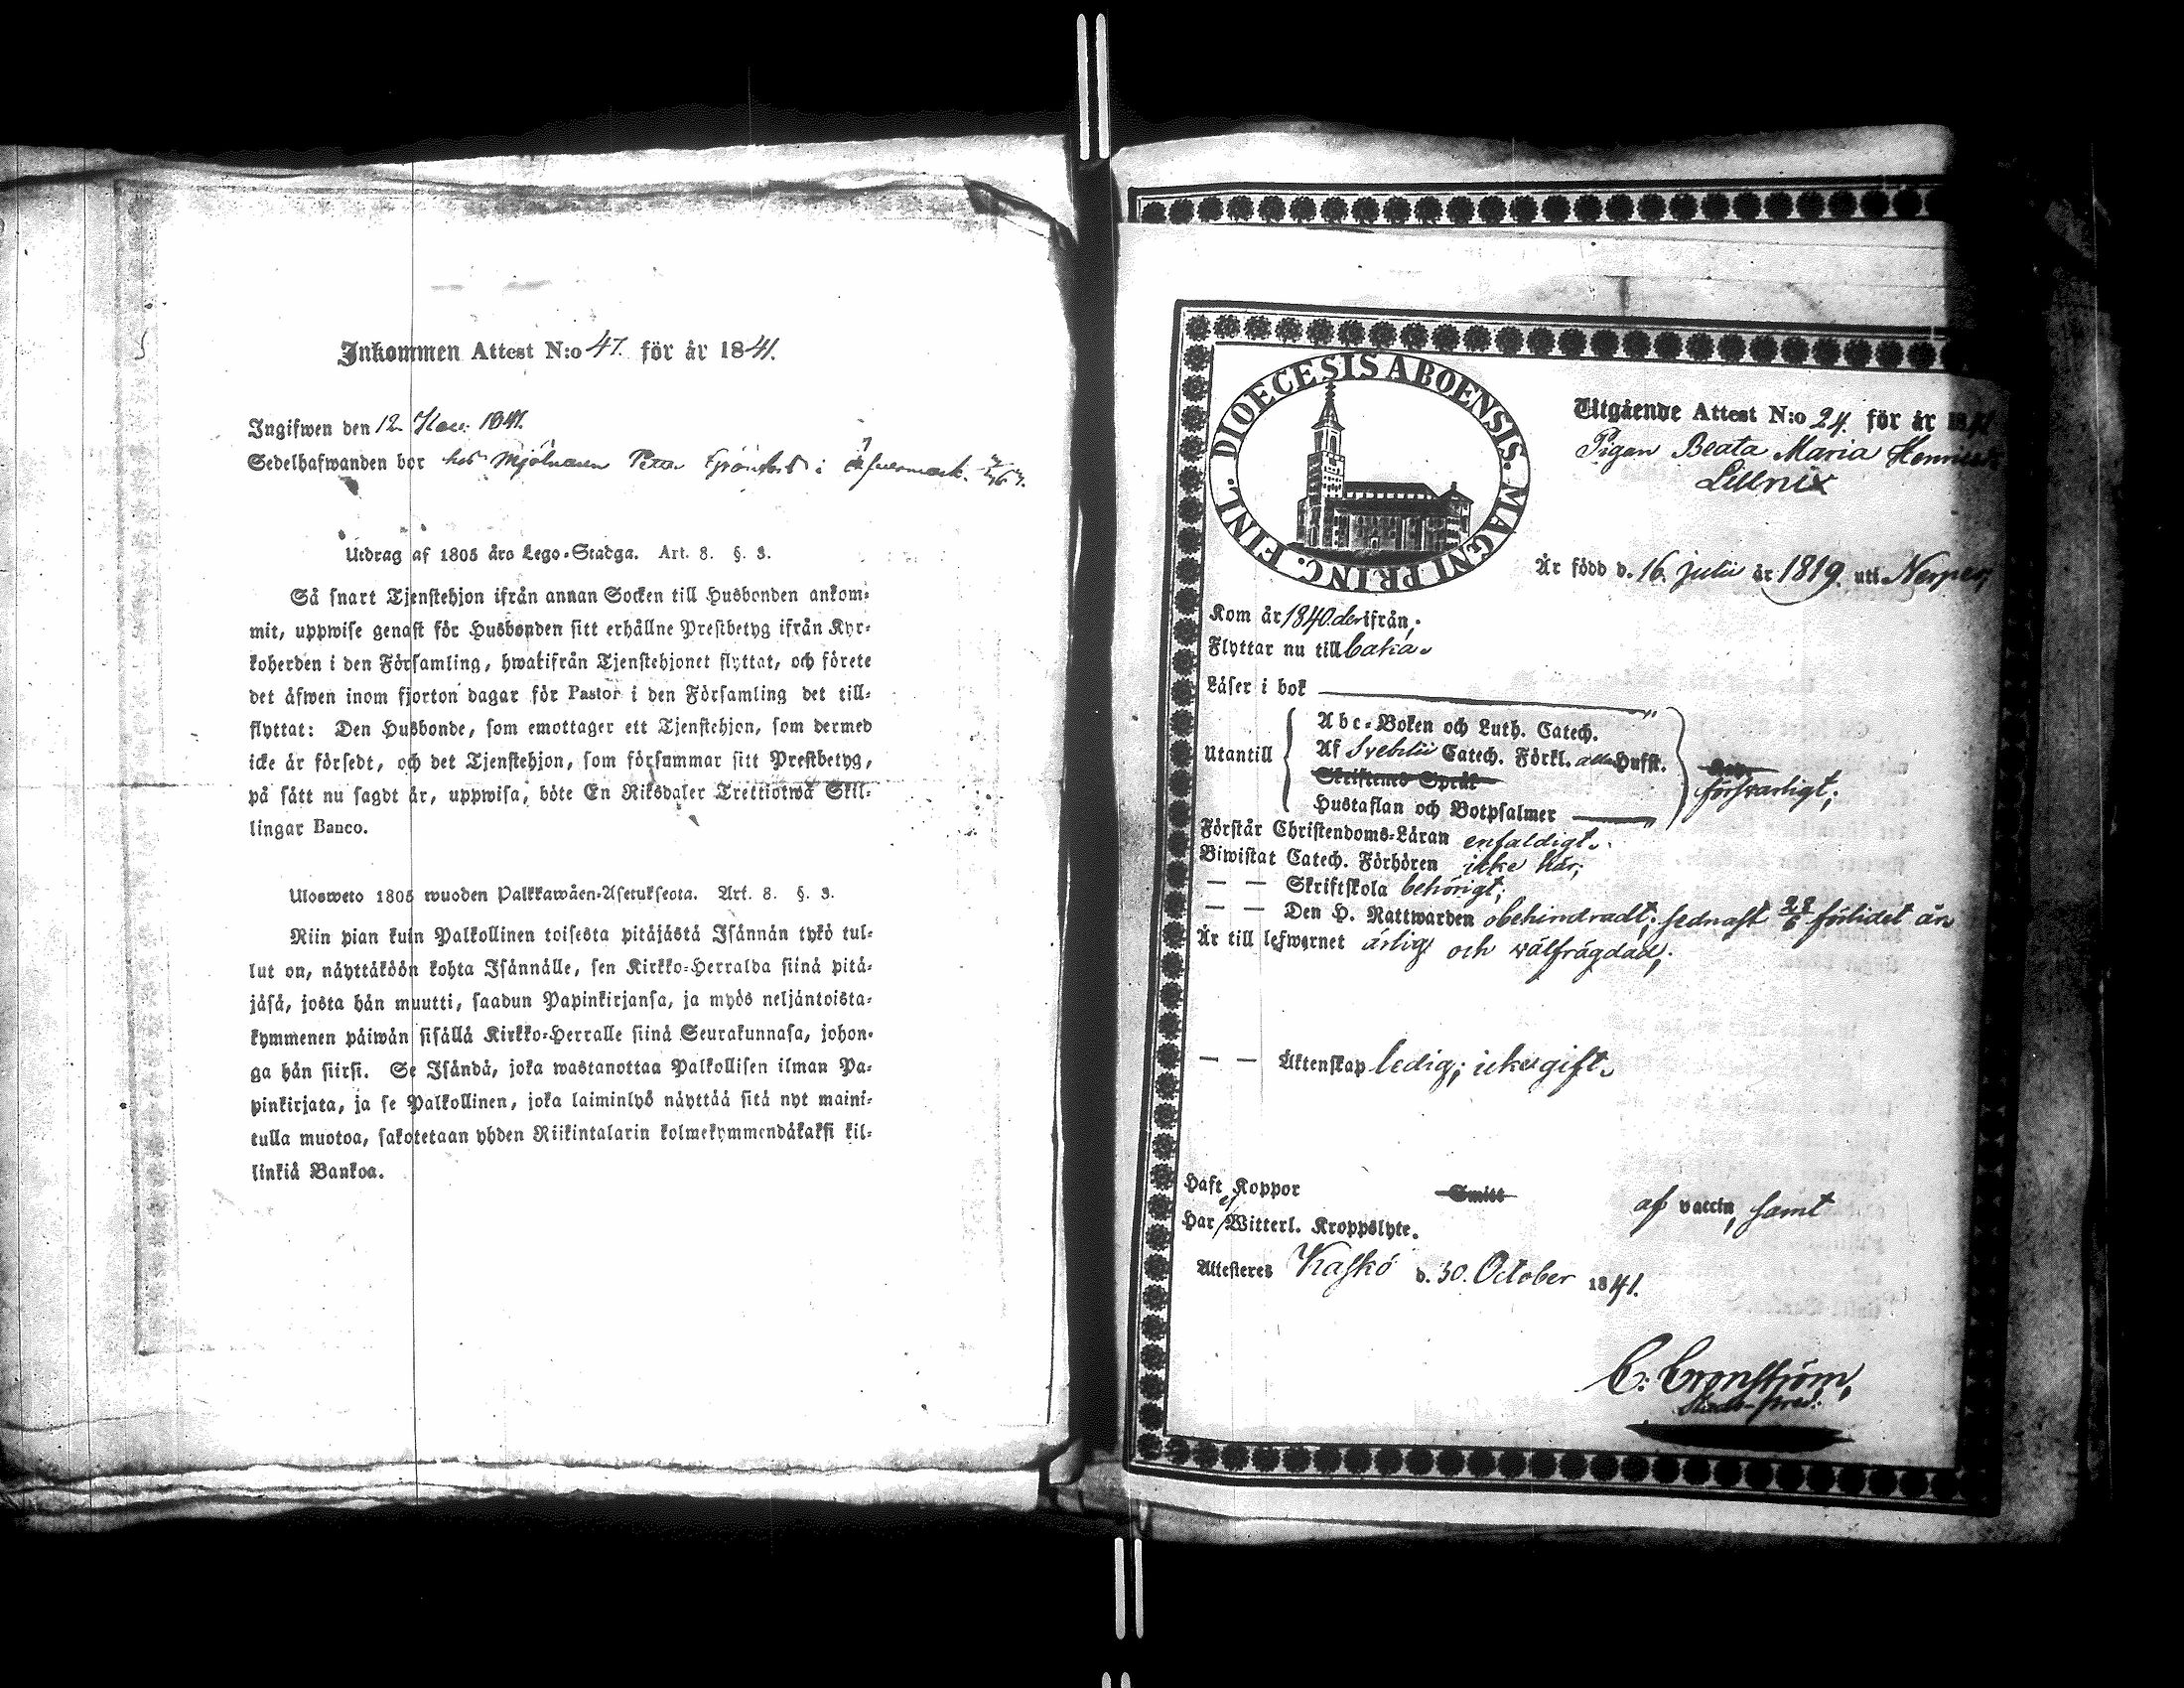 Inkommen Attest N:o 47. för år 1841.
Ingifwen den 12 Nov. 1841.
Sedelhafwanden bor hos Mjölnaren Petter Grönfors i Öfvermark.
Utdrag af 1805 års Lego-Stadga. Art. 8. §. 3.
Så snart Tjenstehjon ifrån annan Socken till Husbonden ankom-
mit, uppwise genast för Husbonden sitt erhållne Prestbetyg ifrån Kyr-
koherden i den Församling, hwarifrån Tjenstehjonet flyttat, och förete
det äfwen inom fjorton dagar för Pastor i den Församling det till-
flyttat: Den Husbonde, som emottager ett Tjenstehjon, som dermed
icke är försedt, och det Tjenstehjon, som försummar sitt Prestbetyg,
på sätt nu sagdt är, uppwisa, böte En Riksdaler Trettiotwå Skil-
lingar Banco.
Ulosweto 1805 wuoden Palkkawäen-Asetuksesta. Art. 8. §. 3.
Niin pian kuin Palkollinen toisesta pitäjästä Isännän tykö tul-
lut on, näyttäköön kohta Isännälle, sen Kirkko-Herralda siinä pitä-
jäsä, josta hän muutti, saadun Papinkirjansa, ja myös neljäntoista-
kymmenen päiwän sisällä Kirkko-Herralle siinä Seurakunnasa, johon-
ga hän siirsi. Se Isändä, joka wastanottaa Palkollisen ilman Pa-
pinkirjata, ja se Palkollinen, joka laiminlyö näyttää sitä nyt maini-
tulla muotoa, sakotetaan yhden Riikintalarin kolmekymmendäkaksi kil-
linkiä Bankoa.
DIOECESIS ABOENSIS. MAGNI PRINC. FINL.
Utgående Attest N:o 24. för år 1841
Pigan Beata Maria
Lillnix
Är född d. 16. Julii år 1819. uti Nerpes,
Kom år 1840. derifrån;
Flyttar nu till baka.
Läser i bok
Utantill
Abc-Boken och Luth. Catech.
Af Svebilii Catech. Förkl. Hufst.
Skriftenes Språk
Hustaflan och Botpsalmer
försvarligt;
Förstår Christendoms-Läran enfaldigt.
Biwistat Catech. Förhören icke här;
— — Skriftskola behörigt;
— — Den H. Nattwarden obehindradt; sednast 28/6 förlidet år.
Är till lefwernet ärlig och välfrägdad;
— — Äktenskap ledig; icke gift.
Haft ej Koppor Smitt af vaccin, samt
Har Witterl. Kroppslyte.
Attesteres Kaskö d. 30. October 1841.
C: Cronström,
Stads-pred: